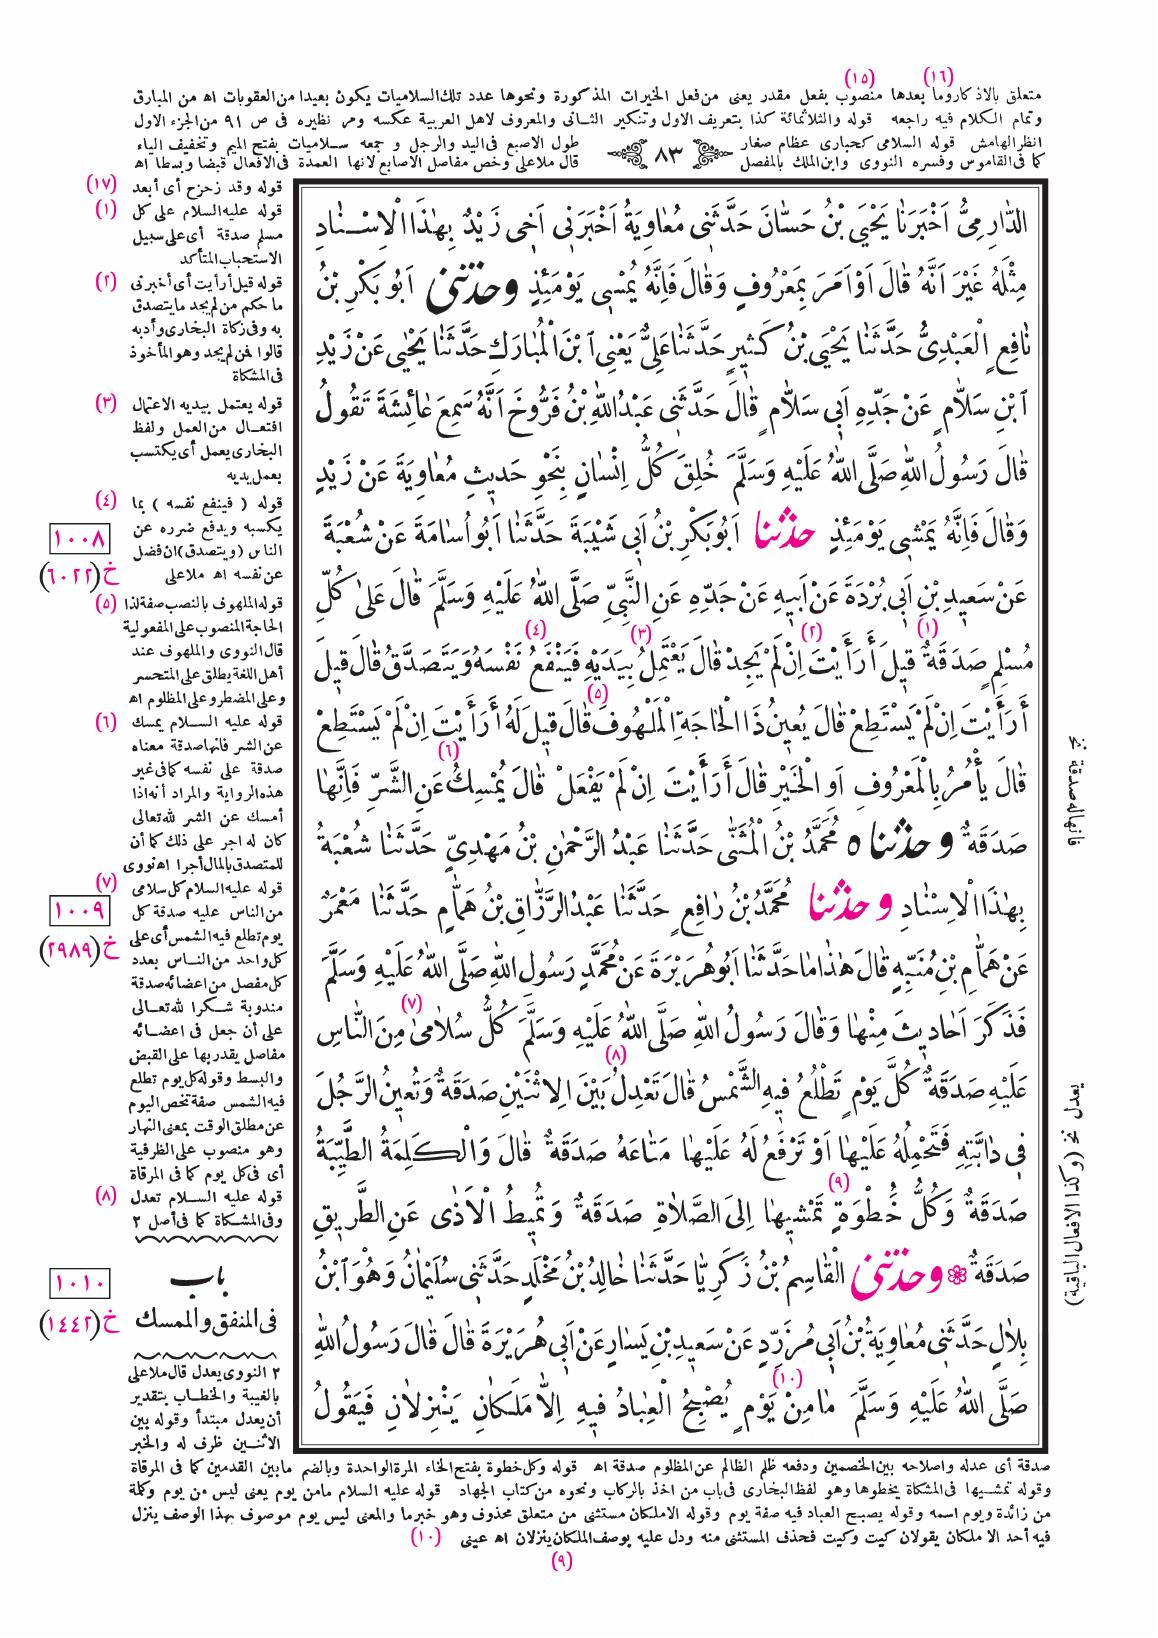 (١٦) (١٥)
متعلق بالاذكار وما بعدها منصوب بفعل مقدر يعنى من فعل الخيرات المذكورة ونحوها عدد تلك السلاميات يكون بعيدا من العقوبات اه من المبارق
وتمام الكلام فيه راجعه قوله والثلاثمائة كذا بتعريف الاول وتنكير الثانى والمعروف لاهل العربية عكسه ومر نظيره فى ص ٩١ من الجزء الاول
انظر الهامش قوله السلامى كحبارى عظام صغار
كما فى القاموس وفسره النووى وابن الملك بالمفصل
٨٣
طول الاصبع فى اليد والرجل و جمعه سلاميات بفتح الميم وتخفيف الياء
قال ملاعلى وخص مفاصل الاصابع لانها العمدة فى الافعال قبضا وبسطا اه
الدَّارِمِىُّ اَخْبَرَنَا يَحْيَى بْنُ حَسَّانَ حَدَّثَنِى مُعَاوِيَةُ اَخْبَرَنِى اَخِى زَيْدٌ بِهٰذَا الْاِسْنَادِ
مِثْلَهُ غَيْرَ اَنَّهُ قَالَ اَوْ اَمَرَ بِمَعْرُوفٍ وَقَالَ فَاِنَّهُ يُمْسِى يَوْمَئِذٍ وحدثنى اَبُو بَكْرِ بْنُ
نَافِعٍ الْعَبْدِىُّ حَدَّثَنَا يَحْيَى بْنُ كَثِيرٍ حَدَّثَنَا عَلِىٌّ يَعْنِى ابْنَ الْمُبَارَكِ حَدَّثَنَا يَحْيٰى عَنْ زَيْدِ
ابْنِ سَلَّامٍ عَنْ جَدِّهِ اَبِى سَلَّامٍ قَالَ حَدَّثَنِى عَبْدُ اللّٰهِ بْنُ فَرُّوخَ اَنَّهُ سَمِعَ عَائِشَةَ تَقُولُ
قَالَ رَسُولُ اللّٰهِ صَلَّى اللّٰهُ عَلَيْهِ وَسَلَّمَ خُلِقَ كُلُّ اِنْسَانٍ بِنَحْوِ حَدِيثِ مُعَاوِيَةَ عَنْ زَيْدٍ
وَقَالَ فَاِنَّهُ يَمْشِى يَوْمَئِذٍ حدثنا اَبُو بَكْرِ بْنُ اَبِى شَيْبَةَ حَدَّثَنَا اَبُو اُسَامَةَ عَنْ شُعْبَةَ
عَنْ سَعِيدِ بْنِ اَبِى بُرْدَةَ عَنْ اَبِيهِ عَنْ جَدِّهِ عَنِ النَّبِىِّ صَلَّى اللّٰهُ عَلَيْهِ وَسَلَّمَ قَالَ عَلٰى كُلِّ
(١) (٢) (٣) (٤)
مُسْلِمٍ صَدَقَةٌ قِيلَ أَرَأَيْتَ اِنْ لَمْ يَجِدْ قَالَ يَعْتَمِلُ بِيَدَيْهِ فَيَنْفَعُ نَفْسَهُ وَيَتَصَدَّقُ قَالَ قِيلَ
(٥)
أَرَأَيْتَ اِنْ لَمْ يَسْتَطِعْ قَالَ يُعِينُ ذَا الْحَاجَةِ الْمَلْهُوفَ قَالَ قِيلَ لَهُ أَرَأَيْتَ اِنْ لَمْ يَسْتَطِعْ
(٦)
قَالَ يَأْمُرُ بِالْمَعْرُوفِ اَوِ الْخَيْرِ قَالَ أَرَأَيْتَ اِنْ لَمْ يَفْعَلْ قَالَ يُمْسِكُ عَنِ الشَّرِّ فَاِنَّهَا
صَدَقَةٌ وحدثناه مُحَمَّدُ بْنُ الْمُثَنّٰى حَدَّثَنَا عَبْدُ الرَّحْمٰنِ بْنُ مَهْدِىٍّ حَدَّثَنَا شُعْبَةُ
بِهٰذَا الْاِسْنَادِ وحدثنا مُحَمَّدُ بْنُ رَافِعٍ حَدَّثَنَا عَبْدُ الرَّزَّاقِ بْنُ هَمَّامٍ حَدَّثَنَا مَعْمَرٌ
عَنْ هَمَّامِ بْنِ مُنَبِّهٍ قَالَ هٰذَا مَا حَدَّثَنَا اَبُو هُرَيْرَةَ عَنْ مُحَمَّدٍ رَسُولِ اللّٰهِ صَلَّى اللّٰهُ عَلَيْهِ وَسَلَّمَ
(٧)
فَذَكَرَ اَحَادِيثَ مِنْهَا وَقَالَ رَسُولُ اللّٰهِ صَلَّى اللّٰهُ عَلَيْهِ وَسَلَّمَ كُلُّ سُلَامٰى مِنَ النَّاسِ
(٨)
عَلَيْهِ صَدَقَةٌ كُلَّ يَوْمٍ تَطْلُعُ فِيهِ الشَّمْسُ قَالَ تَعْدِلُ بَيْنَ الِاثْنَيْنِ صَدَقَةٌ وَتُعِينُ الرَّجُلَ
فِى دَابَّتِهِ فَتَحْمِلُهُ عَلَيْهَا اَوْ تَرْفَعُ لَهُ عَلَيْهَا مَتَاعَهُ صَدَقَةٌ قَالَ وَالْكَلِمَةُ الطَّيِّبَةُ
(٩)
صَدَقَةٌ وَكُلُّ خُطْوَةٍ تَمْشِيهَا اِلَى الصَّلَاةِ صَدَقَةٌ وَتُمِيطُ الْاَذٰى عَنِ الطَّرِيقِ
صَدَقَةٌ وحدثنى الْقَاسِمُ بْنُ زَكَرِيَّا حَدَّثَنَا خَالِدُ بْنُ مَخْلَدٍ حَدَّثَنِى سُلَيْمَانُ وَهُوَ ابْنُ
بِلَالٍ حَدَّثَنِى مُعَاوِيَةُ بْنُ اَبِى مُزَرِّدٍ عَنْ سَعِيدِ بْنِ يَسَارٍ عَنْ اَبِى هُرَيْرَةَ قَالَ قَالَ رَسُولُ اللّٰهِ
(١٠)
صَلَّى اللّٰهُ عَلَيْهِ وَسَلَّمَ مَا مِنْ يَوْمٍ يُصْبِحُ الْعِبَادُ فِيهِ اِلَّا مَلَكَانِ يَنْزِلَانِ فَيَقُولُ
فانها له صدقة نخ
يعدل نخ (وكذا الافعال الباقية)
(١٧) قوله وقد زحزح أى أبعد
(١) قوله عليه السلام على كل
مسلم صدقة أى على سبيل
الاستحباب المتأكد
(٢) قوله قيل أرأيت أى أخبرنى
ما حكم من لم يجد ما يتصدق
به وفى زكاة البخارى وأدبه
قالوا فمن لم يجد وهو المأخوذ
فى المشكاة
(٣) قوله يعتمل بيديه الاعتمال
افتعال من العمل ولفظ
البخارى يعمل أى يكتسب
بعمل يديه
(٤) قوله ( فينفع نفسه ) بما
يكسبه ويدفع ضرره عن
الناس (ويتصدق) ان فضل
عن نفسه اه ملاعلى
١٠٠٨
خ (٦٠٢٢)
(٥) قوله الملهوف بالنصب صفة لذا
الحاجة المنصوب على المفعولية
قال النووى والملهوف عند
أهل اللغة يطلق على المتحسر
وعلى المضطر وعلى المظلوم اه
(٦) قوله عليه السلام يمسك
عن الشر فانها صدقة معناه
صدقة على نفسه كما فى غير
هذه الرواية والمراد أنه اذا
أمسك عن الشر لله تعالى
كان له اجر على ذلك كما أن
للمتصدق بالمال أجرا اه نووى
(٧) قوله عليه السلام كل سلامى
من الناس عليه صدقة كل
يوم تطلع فيه الشمس أى على
كل واحد من الناس بعدد
كل مفصل من اعضائه صدقة
مندوبة شكرا لله تعالى
على أن جعل فى اعضائه
مفاصل يقدر بها على القبض
والبسط وقوله كل يوم تطلع
فيه الشمس صفة تخص اليوم
عن مطلق الوقت بمعنى النهار
وهو منصوب على الظرفية
أى فى كل يوم كما فى المرقاة
١٠٠٩
خ (٢٩٨٩)
(٨) قوله عليه السلام تعدل
وفى المشكاة كما فى أصل ٢
باب
فى المنفق والممسك
١٠١٠
خ (١٤٤٢)
٢ النووى يعدل قال ملاعلى
بالغيبة والخطاب بتقدير
أن يعدل مبتدأ وقوله بين
الاثنين ظرف له والخبر
صدقة أى عدله واصلاحه بين الخصمين ودفعه ظلم الظالم عن المظلوم صدقة اه قوله وكل خطوة بفتح الخاء المرة الواحدة وبالضم ما بين القدمين كما فى المرقاة
وقوله تمشيها فى المشكاة يخطوها وهو لفظ البخارى فى باب من اخذ بالركاب ونحوه من كتاب الجهاد قوله عليه السلام ما من يوم يعنى ليس من يوم وكلمة
من زائدة ويوم اسمه وقوله يصبح العباد فيه صفة يوم وقوله الا ملكان مستثنى من متعلق محذوف وهو خبر ما والمعنى ليس يوم موصوف بهذا الوصف ينزل
فيه أحد الا ملكان يقولان كيت وكيت فحذف المستثنى منه ودل عليه بوصف الملكان ينزلان اه عينى (١٠)
(٩)